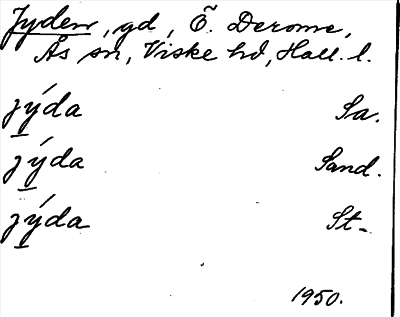 Jyden, gd, Õ. Derome,
Ås sn, Viske hd, Hall. l.
jýda Sa.
jýda Sand.
jýda St-
1950.